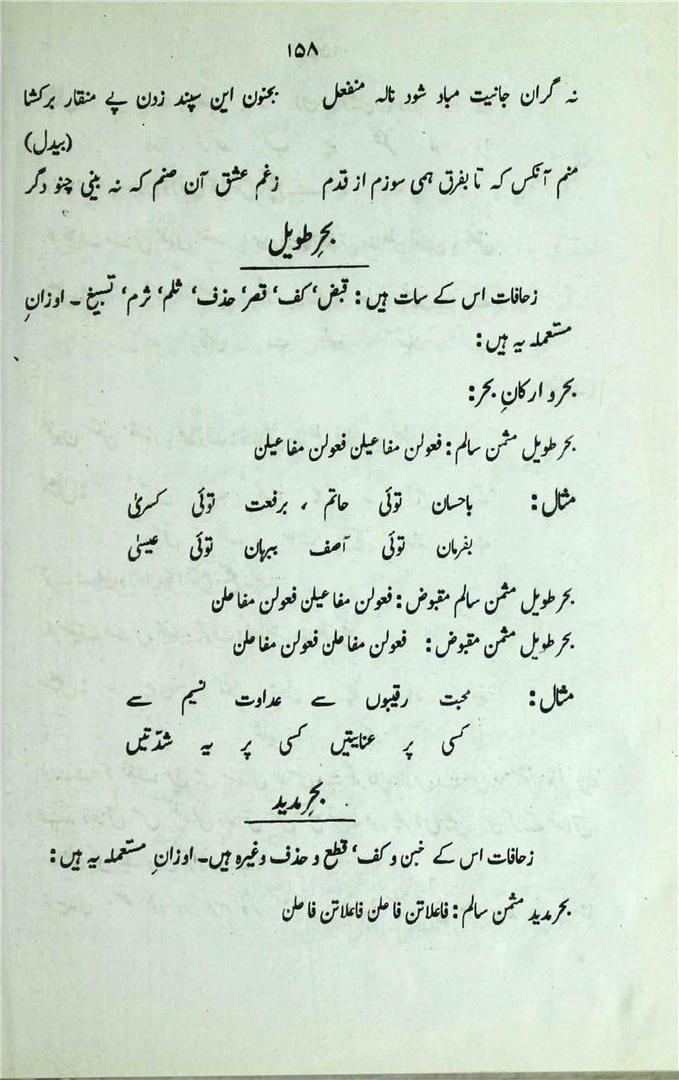 ۱۵۸
نہ گران جانیت مباد شود نالہ منفعل بجنون این سپند زدن پے منقار برکشا
(بیدل)
منم آنکس کہ تا بفرق ہمی سوزم از قدم زغم عشق آن صنم کہ نہ بینی چنو دگر
بحرِ طویل
زحافات اس کے سات ہیں: قبض، کف، قصر، حذف، ثلم، ثرم، تسبیغ۔ اوزانِ
مستعملہ یہ ہیں:
بحر و ارکانِ بحر:
بحر طویل مثمن سالم: فعولن مفاعیلن فعولن مفاعیلن
مثال: باحسان توئی حاتم، برفعت توئی کسریٰ
بفرمان توئی آصف ببرہان توئی عیسیٰ
بحر طویل مثمن سالم مقبوض: فعولن مفاعیلن فعولن مفاعلن
بحر طویل مثمن مقبوض: فعولن مفاعلن فعولن مفاعلن
مثال: محبت رقیبوں سے عداوت نسیم سے
کسی پر عنایتیں کسی پر یہ شدّتیں
بحرِ مدید
زحافات اس کے خبن و کف، قطع و حذف وغیرہ ہیں۔ اوزانِ مستعملہ یہ ہیں:
بحر مدید مثمن سالم: فاعلاتن فاعلن فاعلاتن فاعلن